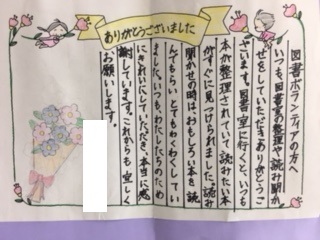 ありがとうございました
図書ボランティアの方へ
いつも、図書室の整理や読み聞か
せをしていただきありがとうご
ざいます。図書室に行くと、いつも
本が整理されていて読みたい本
がすぐに見つけられました。読み
聞かせの時は、おもしろい本を読
んでもらい とてもわくわくしてい
ました。いつも、わたしたちのため
にきれいにしていただき、本当に感
謝しています。これからも宜しく
お願いします。